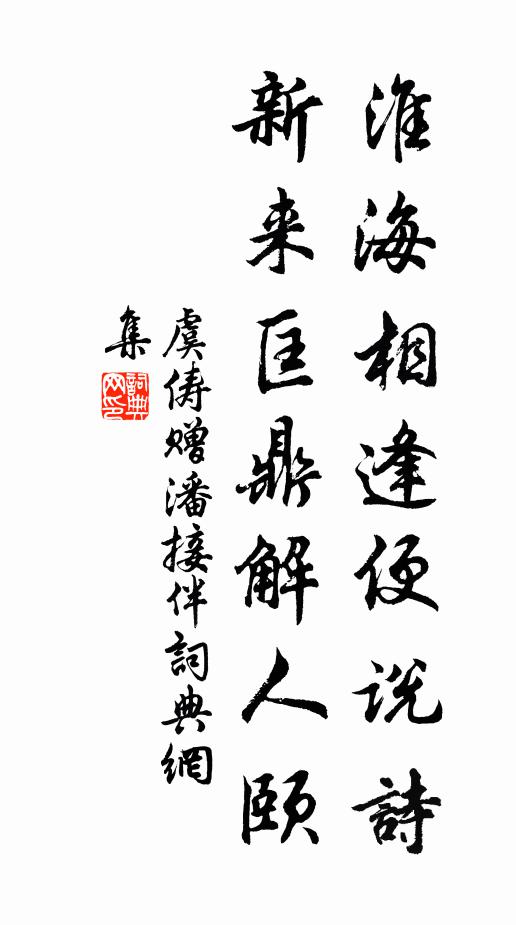 淮海相逢便说詩
新来匡鼎解人頤
虞儔贈潘接伴詞典網
集
詞典
网印